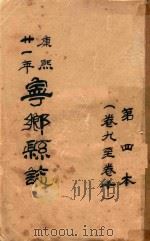 第四本
(卷九至卷
康熙
廿一年
寧鄉縣誌